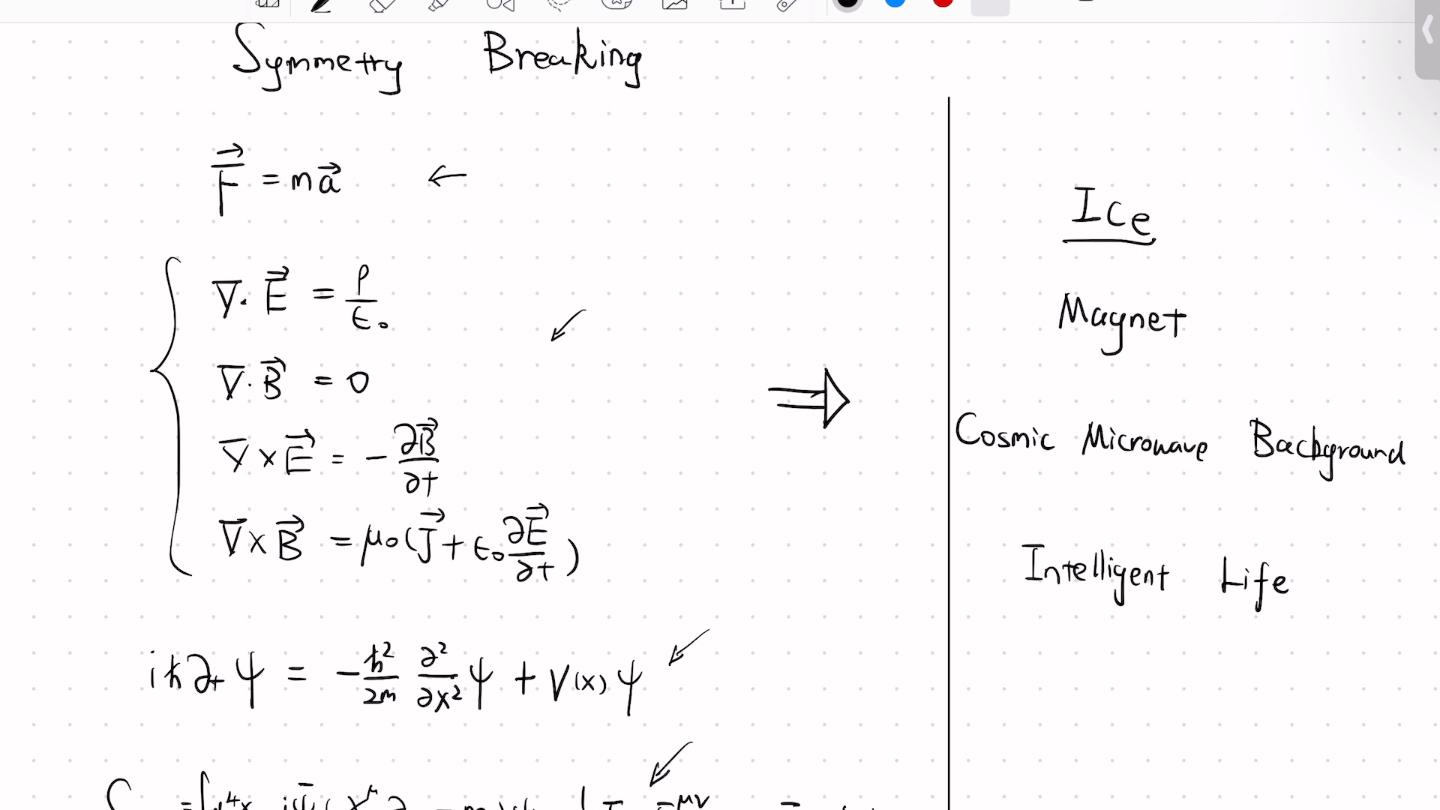 Symmetry Breaking
F⃗ = ma⃗ ←
∇·E⃗ = ρ/ε₀
∇·B⃗ = 0
∇×E⃗ = -∂B⃗/∂t
∇×B⃗ = μ₀(J⃗ + ε₀ ∂E⃗/∂t)
iħ∂ₜψ = -ħ²/2m ∂²/∂x² ψ + V(x)ψ
⇒
Ice
Magnet
Cosmic Microwave Background
Intelligent Life